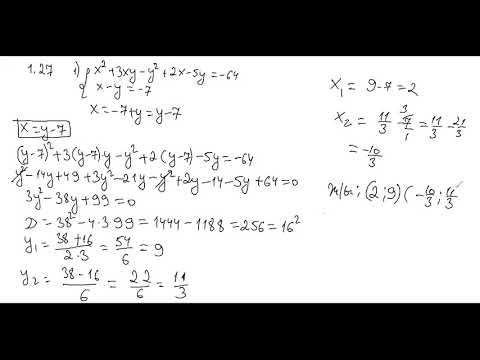 1.27 1) { x² + 3xy - y² + 2x - 5y = -64
x - y = -7
x = -7 + y = y - 7
x = y - 7
(y-7)² + 3(y-7)y - y² + 2(y-7) - 5y = -64
y² - 14y + 49 + 3y² - 21y - y² + 2y - 14 - 5y + 64 = 0
3y² - 38y + 99 = 0
D = 38² - 4·3·99 = 1444 - 1188 = 256 = 16²
y₁ = (38+16)/(2·3) = 54/6 = 9
y₂ = (38-16)/6 = 22/6 = 11/3
x₁ = 9 - 7 = 2
x₂ = 11/3 - 7/1 = 11/3 - 21/3
= -10/3
(2; 9) (-10/3; 11/3